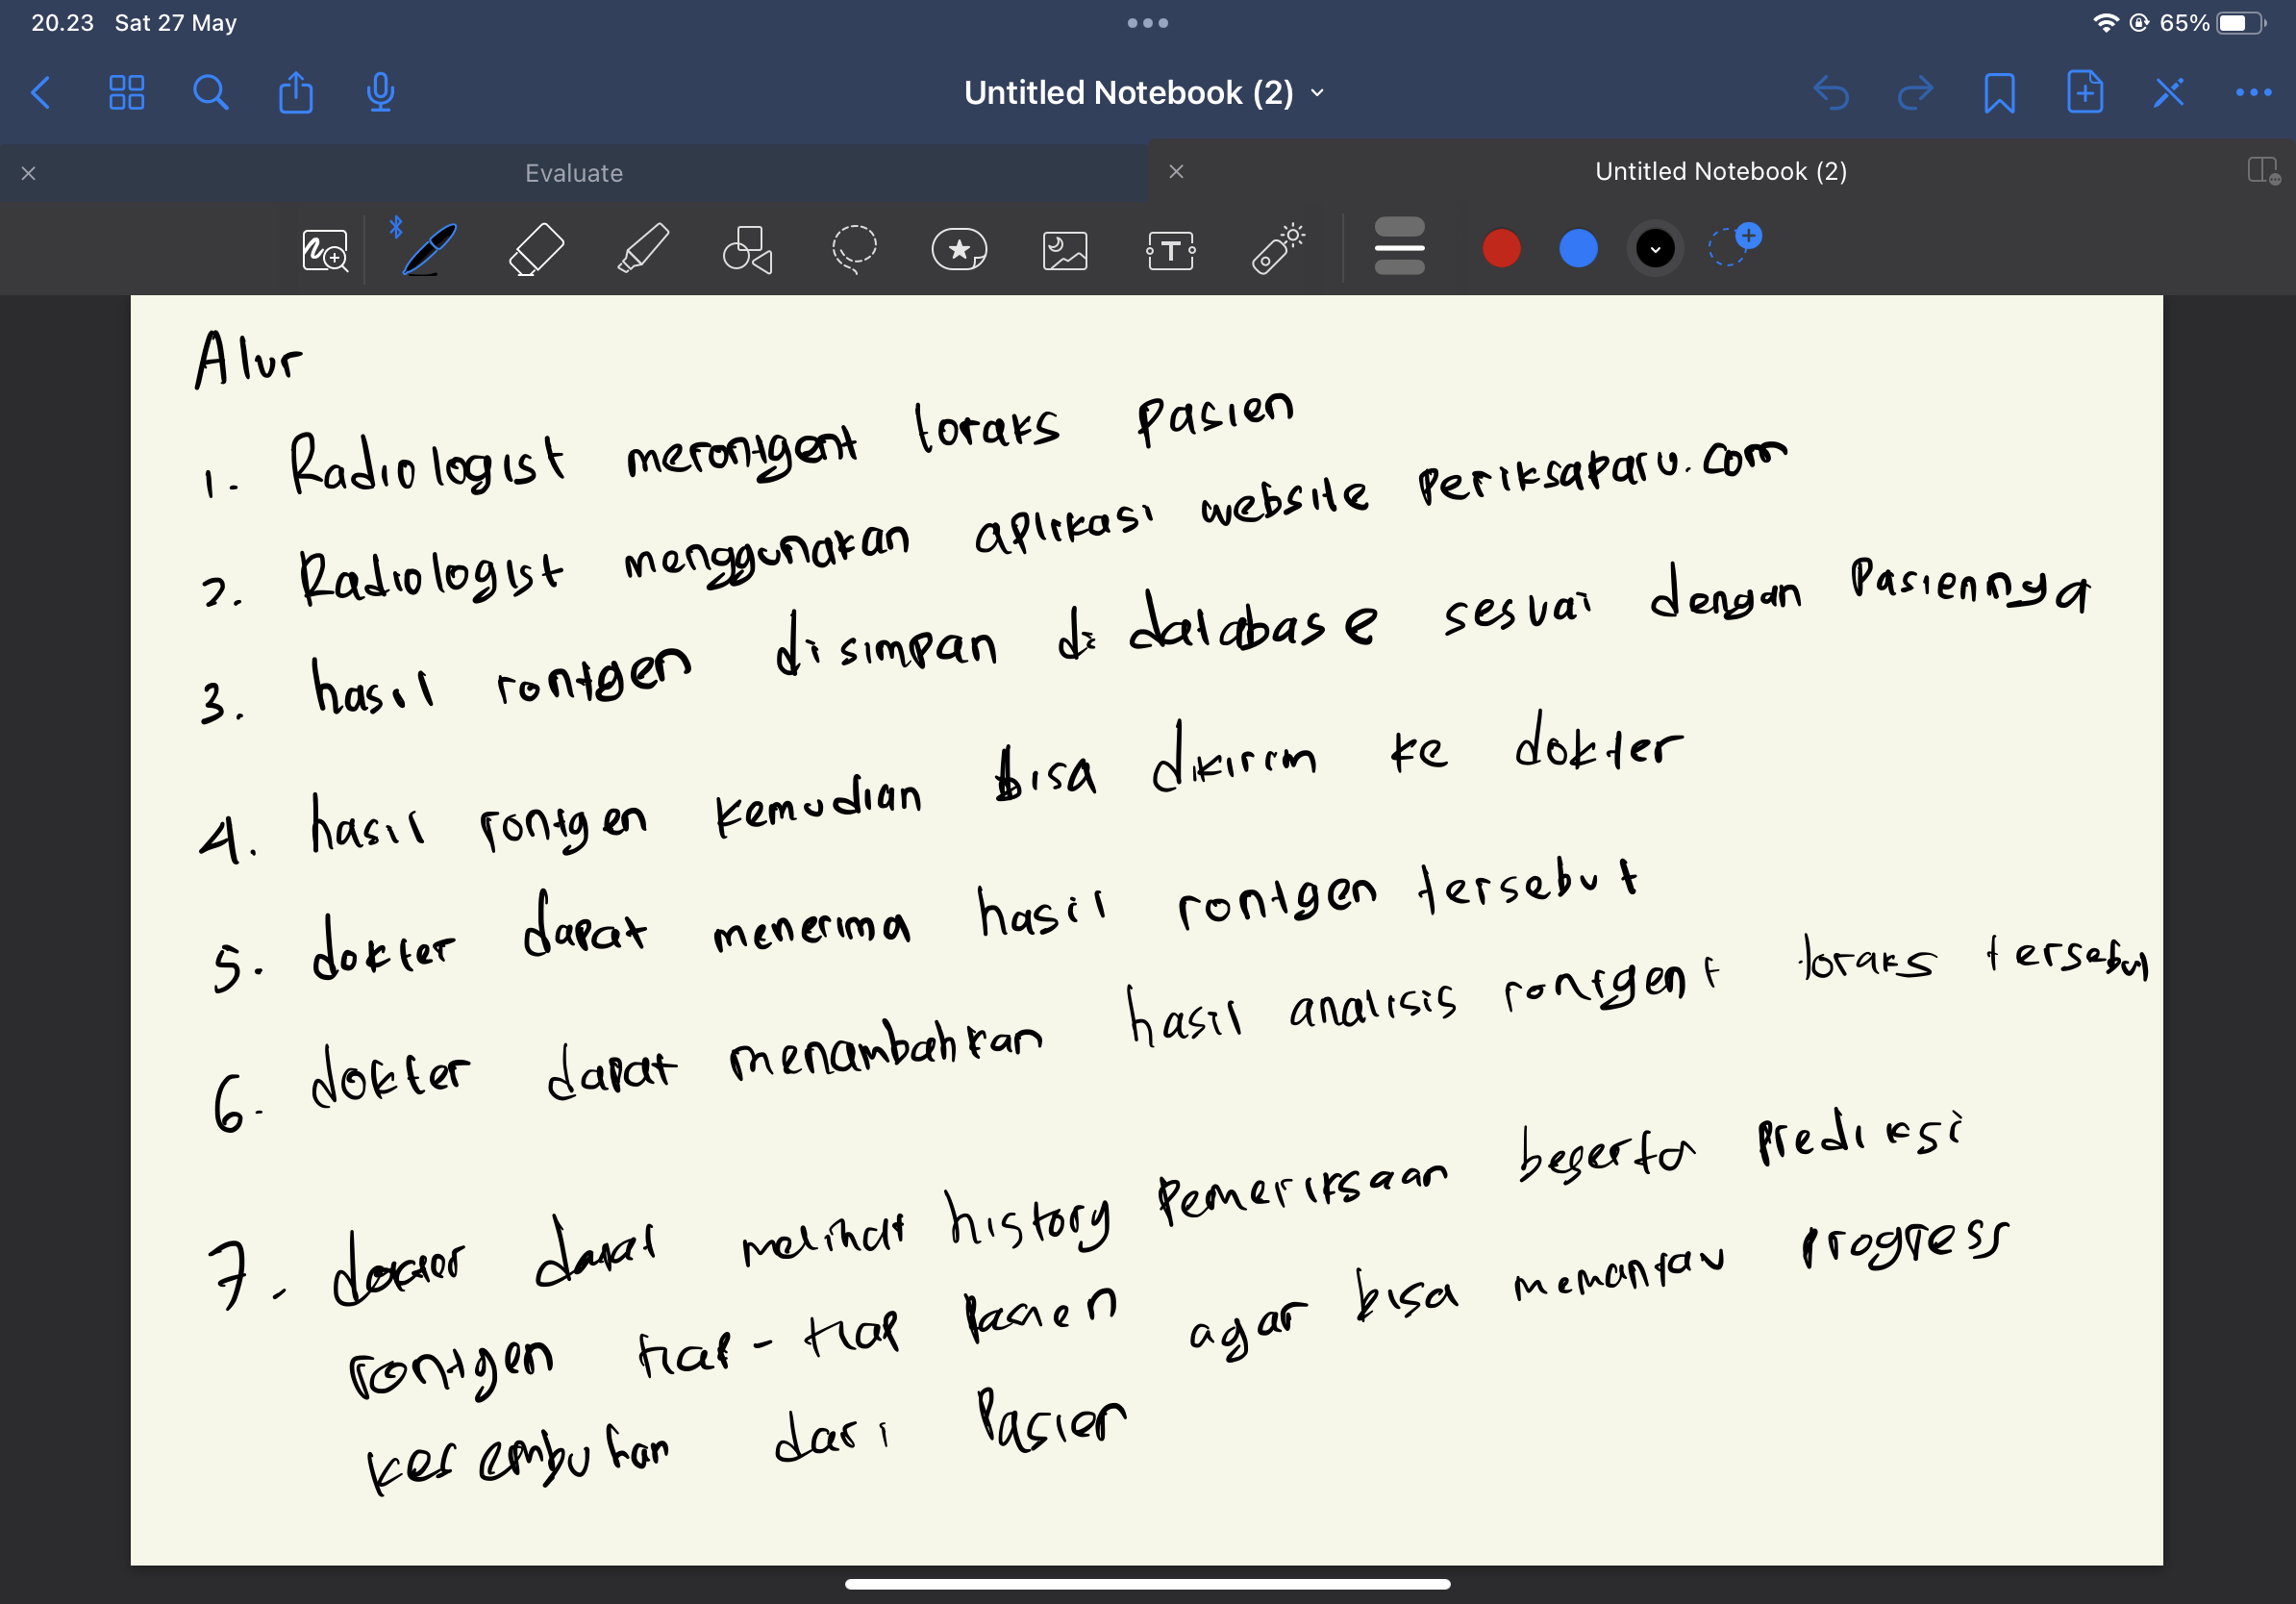 20.23 Sat 27 May
65%
Untitled Notebook (2)
Evaluate
Untitled Notebook (2)
Alur
1. Radiologist merontgent toraks Pasien
2. Radiologist menggunakan aplikasi website Periksaparu.com
3. hasil rontgen disimpan di database sesuai dengan Pasiennya
4. hasil rontgen kemudian bisa dikirim ke dokter
5. dokter dapat menerima hasil rontgen tersebut
6. dokter dapat menambahkan hasil analisis rontgent toraks tersebut
7. dapat melihat history Pemeriksaan beserta Prediksi
rontgen tiap-tiap Pasien agar bisa memantau Progress
kesembuhan dari Pasien